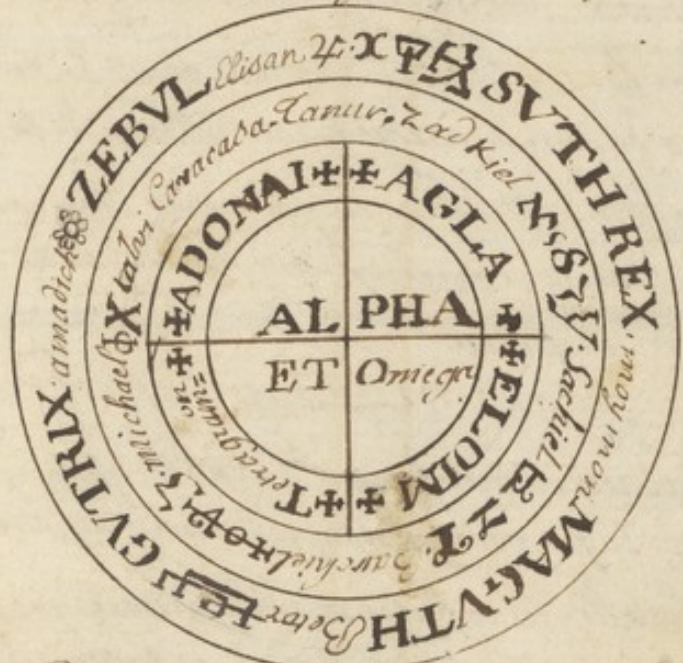 ZEBVL Elisan ♃
SVTH REX
moymon
MAGVTH
Betor
GVTRIX
amadich
talvi Caracasa
Zadkiel
Sachiel
michael
✠ ADONAI ✠
✠ AGLA ✠
✠ ELOIM ✠
✠ Tetragram=
on ✠
AL PHA
ET Omega